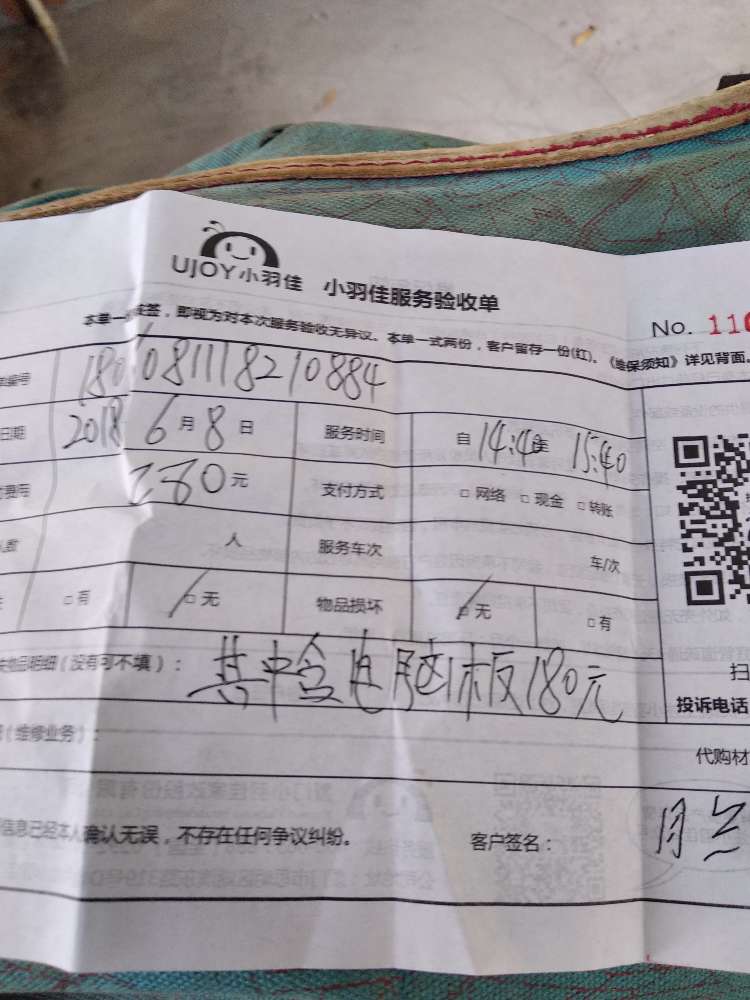 UJOY小羽佳 小羽佳服务验收单
No. 110
本单一经签，即视为对本次服务验收无异议。本单一式两份，客户留存一份(红)。《维保须知》详见背面。
编号 1806081118210884
日期 2018 6月8日 服务时间 自14:40至15:40
费用 280元 支付方式 □网络 □现金 □转账
人数 人 服务车次 车/次
□有 □无 物品损坏 □无 □有
物品明细(没有可不填)： 其中含电脑板180元
扫
投诉电话
(维修业务)：
代购材
信息已经本人确认无误，不存在任何争议纠纷。 客户签名：